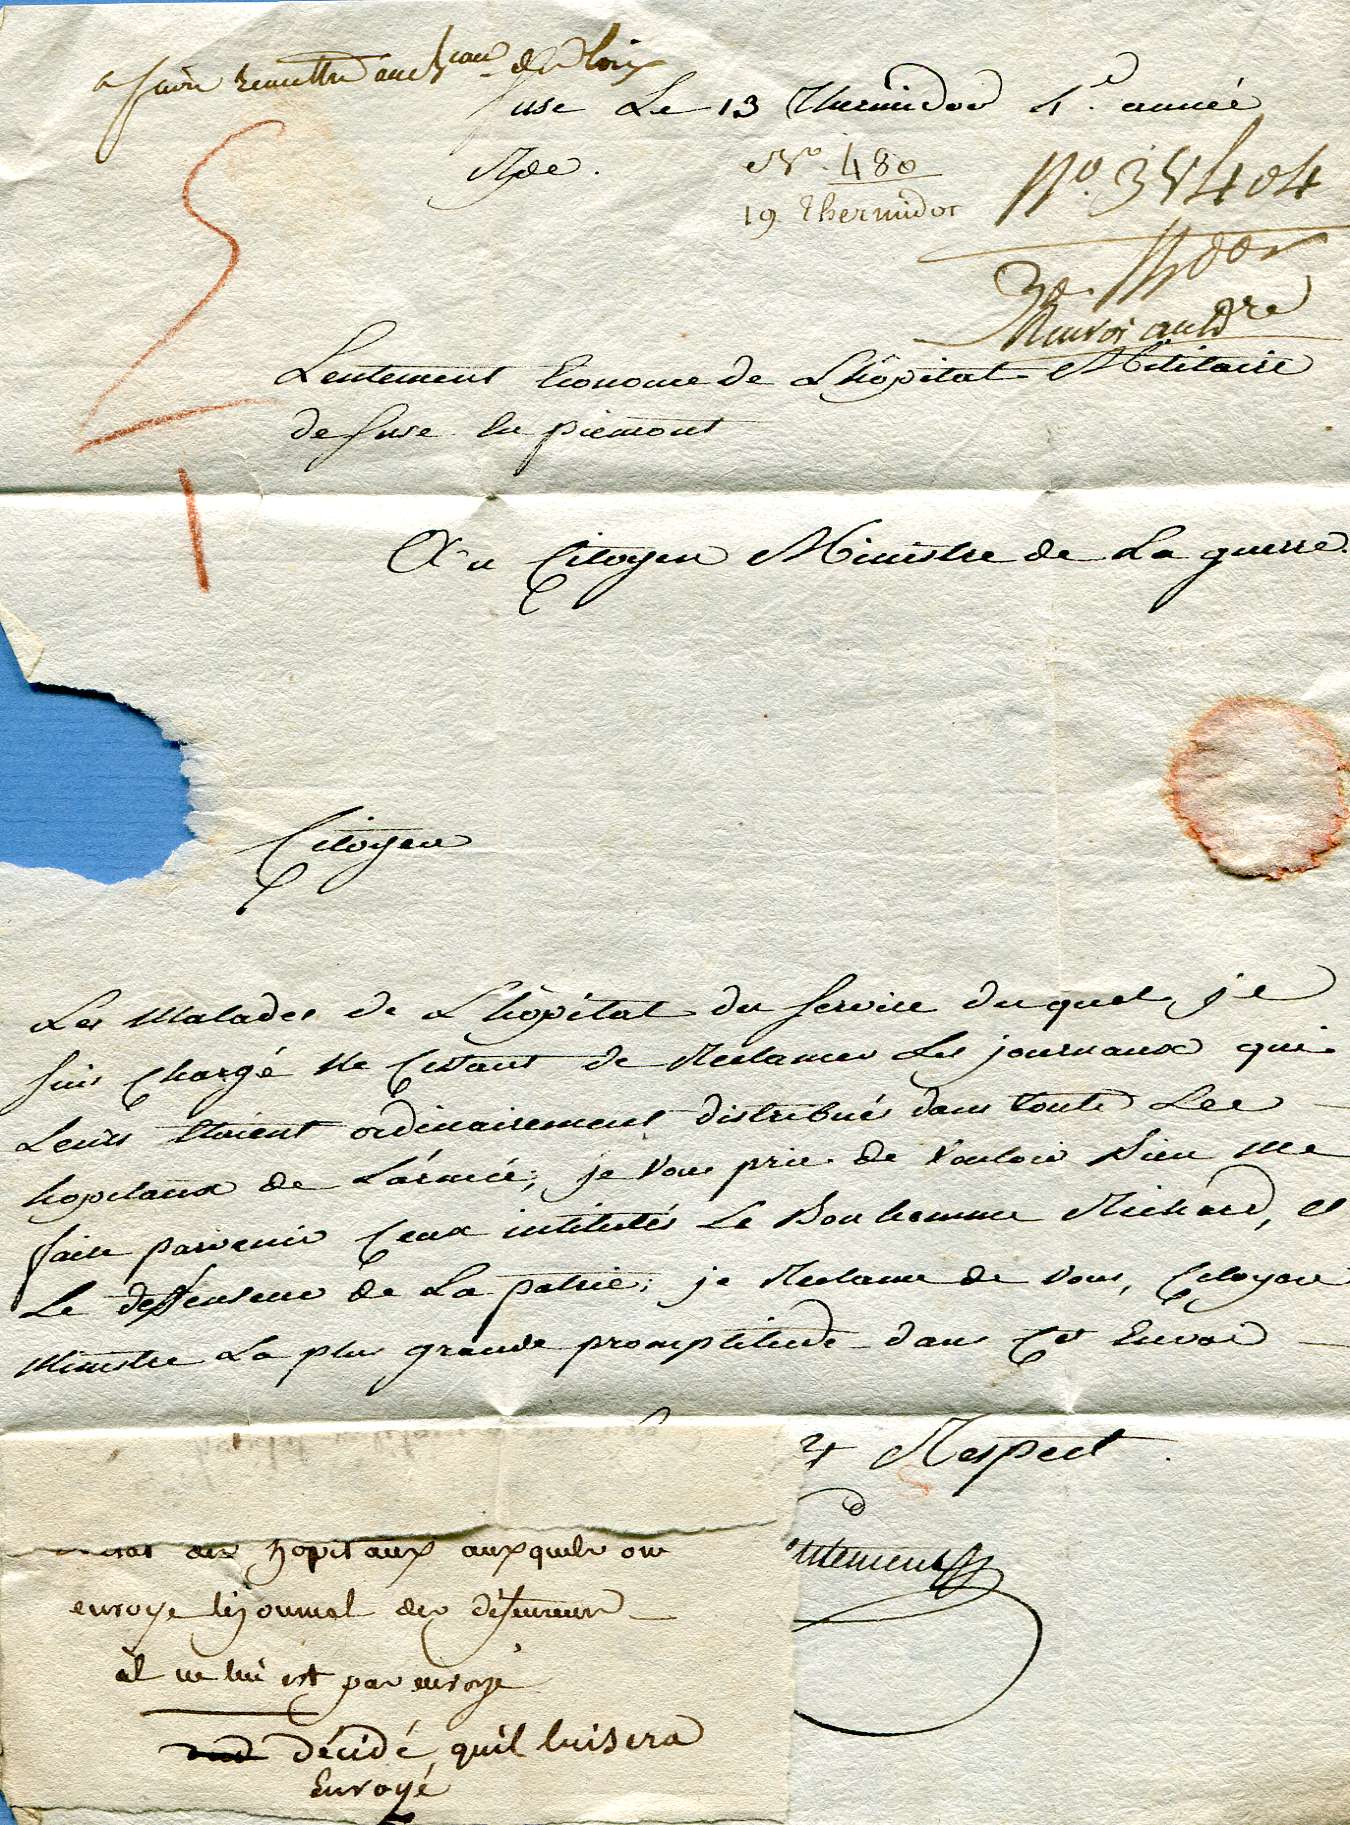 a faire remettre au Bureau des Loix
Suse Le 13 Thermidor 4e. année
Rde.
No. 480
19 Thermidor
No. 38404
3e. 
Renvoi au
Lentement Econome de L'hôpital Militaire
de Suse En piemont
Au Citoyen Ministre de La guerre.
Citoyen
Les Malades de L'hôpital du Service du quel je
suis Chargé Ne Cessant de Reclamer Les journaux qui
Leurs Etoient ordinairement distribués dans toute Les
hopitaux de L'armée, je vous prie de Vouloir Bien me
faire parvenir Ceux intitulés Le Bonhomme Richard, et
Le deffenseur de La patrie; je Reclame de vous, Citoyen
Ministre La plus grande promptitude dans Cet Envoi
et Respect.
ntement
des hopitaux auxquels on
envoye le journal des défenseurs
il ne lui est pas envoyé
décidé quil luisera
Envoyé